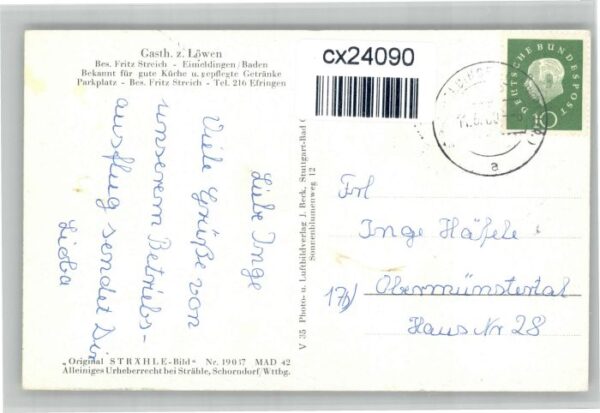 Gasth. z. Löwen
Bes. Fritz Streich - Eimeldingen/Baden
Bekannt für gute Küche u. gepflegte Getränke
Parkplatz - Bes. Fritz Streich - Tel. 216 Efringen
cx24090
DEUTSCHE BUNDESPOST
10
a
Liebe Inge
Viele Grüße von
unserem Betriebs-
ausflug sendet Dir
Lioba
V 35 Photo- u. Luftbildverlag J. Beck, Stuttgart-Bad C
Sonnenblumenweg 12
Frl
Inge Häfele
17b) Obermünstertal
Haus Nr 28
„Original STRÄHLE-Bild" Nr. 19037 MAD 42
Alleiniges Urheberrecht bei Strähle, Schorndorf/Wttbg.